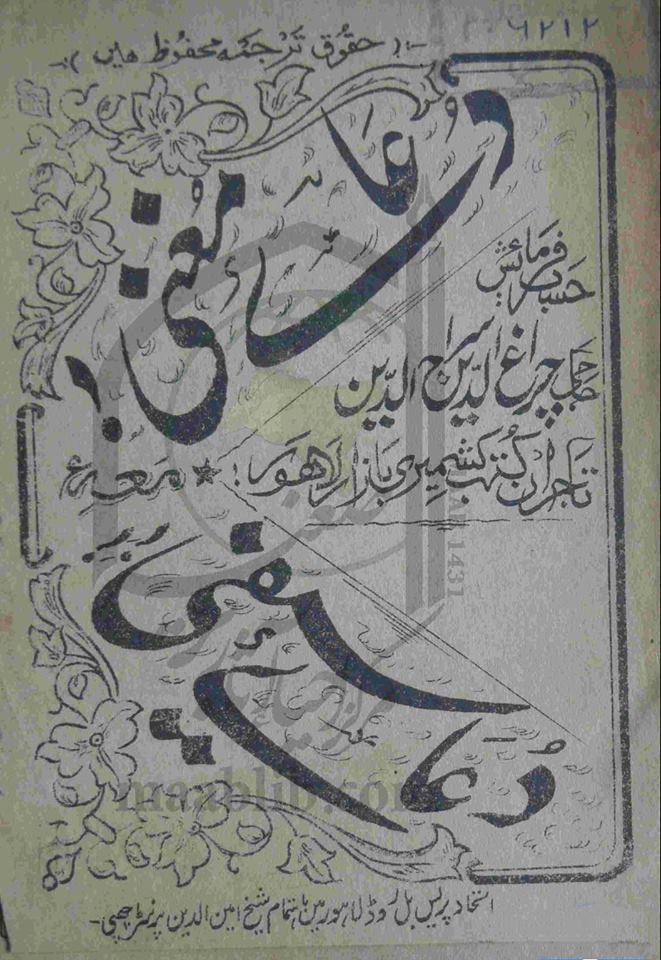 ۶۲۱۲
(حقوق ترجمہ محفوظ ہیں)
دعائے مغنی
حسب فرمائش
حاجی چراغ الدین سراج الدین
تاجران کتب کشمیری بازار لاہور!
معہ
دعائے سیفی
1431
maablib.com
اتحاد پریس بل روڈ لاہور میں باہتمام شیخ امین الدین پرنٹر چھپی۔